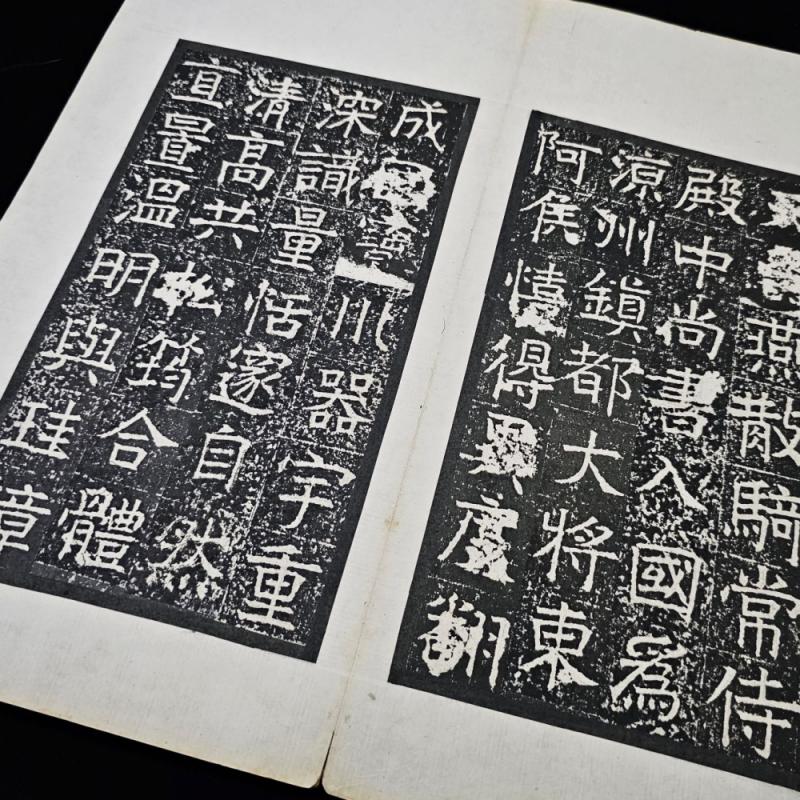 燕散騎常侍
殿中尚書入國爲
涼州鎮都大將東
阿侯得異度翻
成川器宇重
深識量恬邃自然
清高共松筠合體
溫明與珪璋